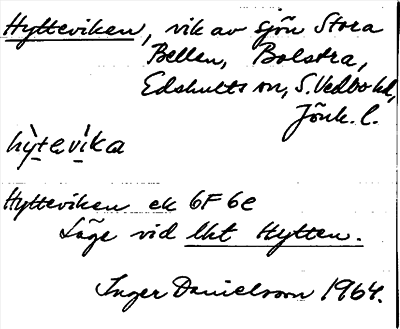 Hytteviken, vik av sjön Stora
Bellen, Bolstra,
Edshults sn, S. Vedbo hd,
Jönk. l.
hỳtevika
Hytteviken ek 6F 6e
Läge vid lht Hytten.
Inger Danielsson 1964.